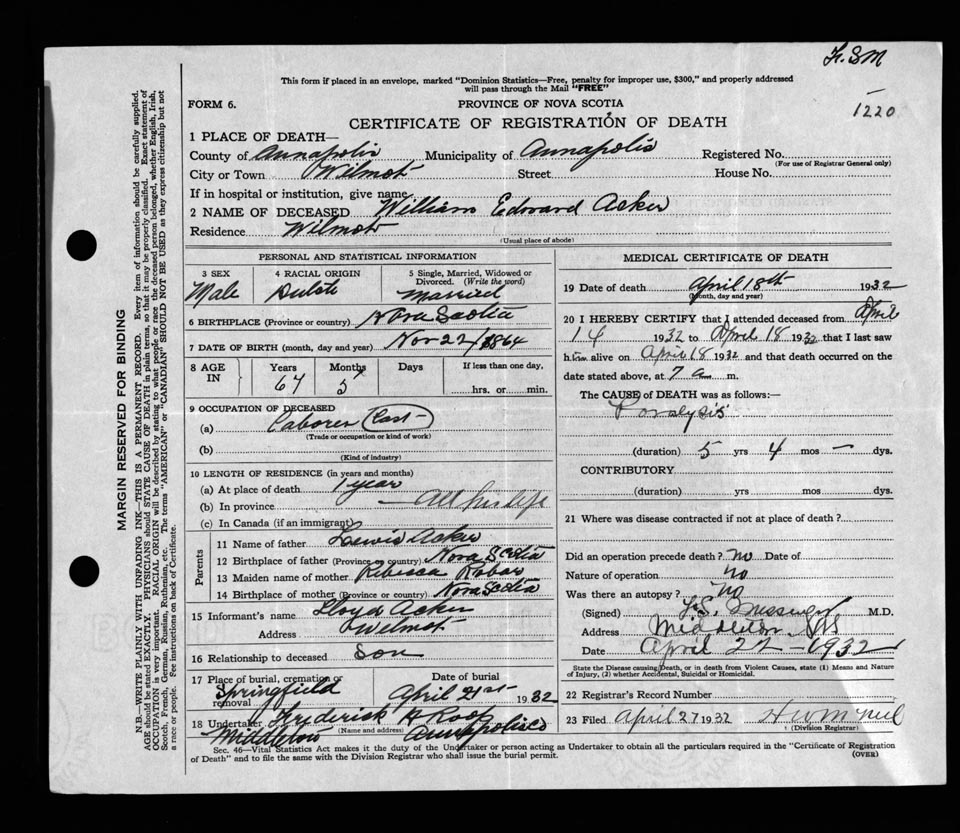 F.SM
This form if placed in an envelope, marked "Dominion Statistics—Free, penalty for improper use, $300," and properly addressed
will pass through the Mail "FREE"
1220
FORM 6.
PROVINCE OF NOVA SCOTIA
CERTIFICATE OF REGISTRATION OF DEATH
1 PLACE OF DEATH—
County of Annapolis Municipality of Annapolis Registered No.
(For use of Registrar General only)
City or Town Wilmot Street House No.
If in hospital or institution, give name
2 NAME OF DECEASED William Edward Acker
Residence Wilmot
(Usual place of abode)
PERSONAL AND STATISTICAL INFORMATION
3 SEX 4 RACIAL ORIGIN 5 Single, Married, Widowed or
Divorced. (Write the word)
Male Dutch Married
6 BIRTHPLACE (Province or country) Nova Scotia
7 DATE OF BIRTH (month, day and year) Nov 22/1864
8 AGE IN Years Months Days If less than one day,
67 5 hrs. or min.
9 OCCUPATION OF DECEASED
(a) Laborer
(Trade or occupation or kind of work)
(b)
(Kind of industry)
10 LENGTH OF RESIDENCE (in years and months)
(a) At place of death 1 year
(b) In province All his life
(c) In Canada (if an immigrant)
Parents
11 Name of father Lewis Acker
12 Birthplace of father (Province or country) Nova Scotia
13 Maiden name of mother Rebecca
14 Birthplace of mother (Province or country) Nova Scotia
15 Informant's name Lloyd Acker
Address Wilmot
16 Relationship to deceased Son
17 Place of burial, cremation or removal Date of burial
Springfield April 21st 1932
18 Undertaker Frederick H Roop
(Name and address)
Middleton Annapolis Co
MEDICAL CERTIFICATE OF DEATH
19 Date of death April 18th 1932
(Month, day and year)
20 I HEREBY CERTIFY that I attended deceased from April
14 1932 to April 18 1932 that I last saw
him alive on April 18 1932 and that death occurred on the
date stated above, at 7 a m.
The CAUSE of DEATH was as follows:—
Paralysis
(duration) 5 yrs 4 mos — dys.
CONTRIBUTORY
(duration) yrs mos dys.
21 Where was disease contracted if not at place of death?
Did an operation precede death? no Date of
Nature of operation no
Was there an autopsy? no
(Signed) F.S. Messenger M.D.
Address Middleton NS
Date April 22 — 1932
State the Disease causing Death, or in death from Violent Causes, state (1) Means and Nature
of Injury, (2) whether Accidental, Suicidal or Homicidal.
22 Registrar's Record Number
23 Filed April 27 1932
(Division Registrar)
Sec. 46—Vital Statistics Act makes it the duty of the Undertaker or person acting as Undertaker to obtain all the particulars required in the "Certificate of Registration
of Death" and to file the same with the Division Registrar who shall issue the burial permit.
(OVER)
MARGIN RESERVED FOR BINDING
N.B.—WRITE PLAINLY WITH UNFADING INK—THIS IS A PERMANENT RECORD. Every item of information should be carefully supplied.
AGE should be stated EXACTLY. PHYSICIANS should STATE CAUSE OF DEATH in plain terms, so that it may be properly classified. Exact statement of
OCCUPATION is very important. RACIAL ORIGIN will be described by stating to what people or race the deceased person belonged, whether English, Irish,
Scotch, French, German, Russian, Ruthenian, etc. The terms "AMERICAN" or "CANADIAN" SHOULD NOT BE USED as they express citizenship but not
a race or people. See instructions on back of Certificate.